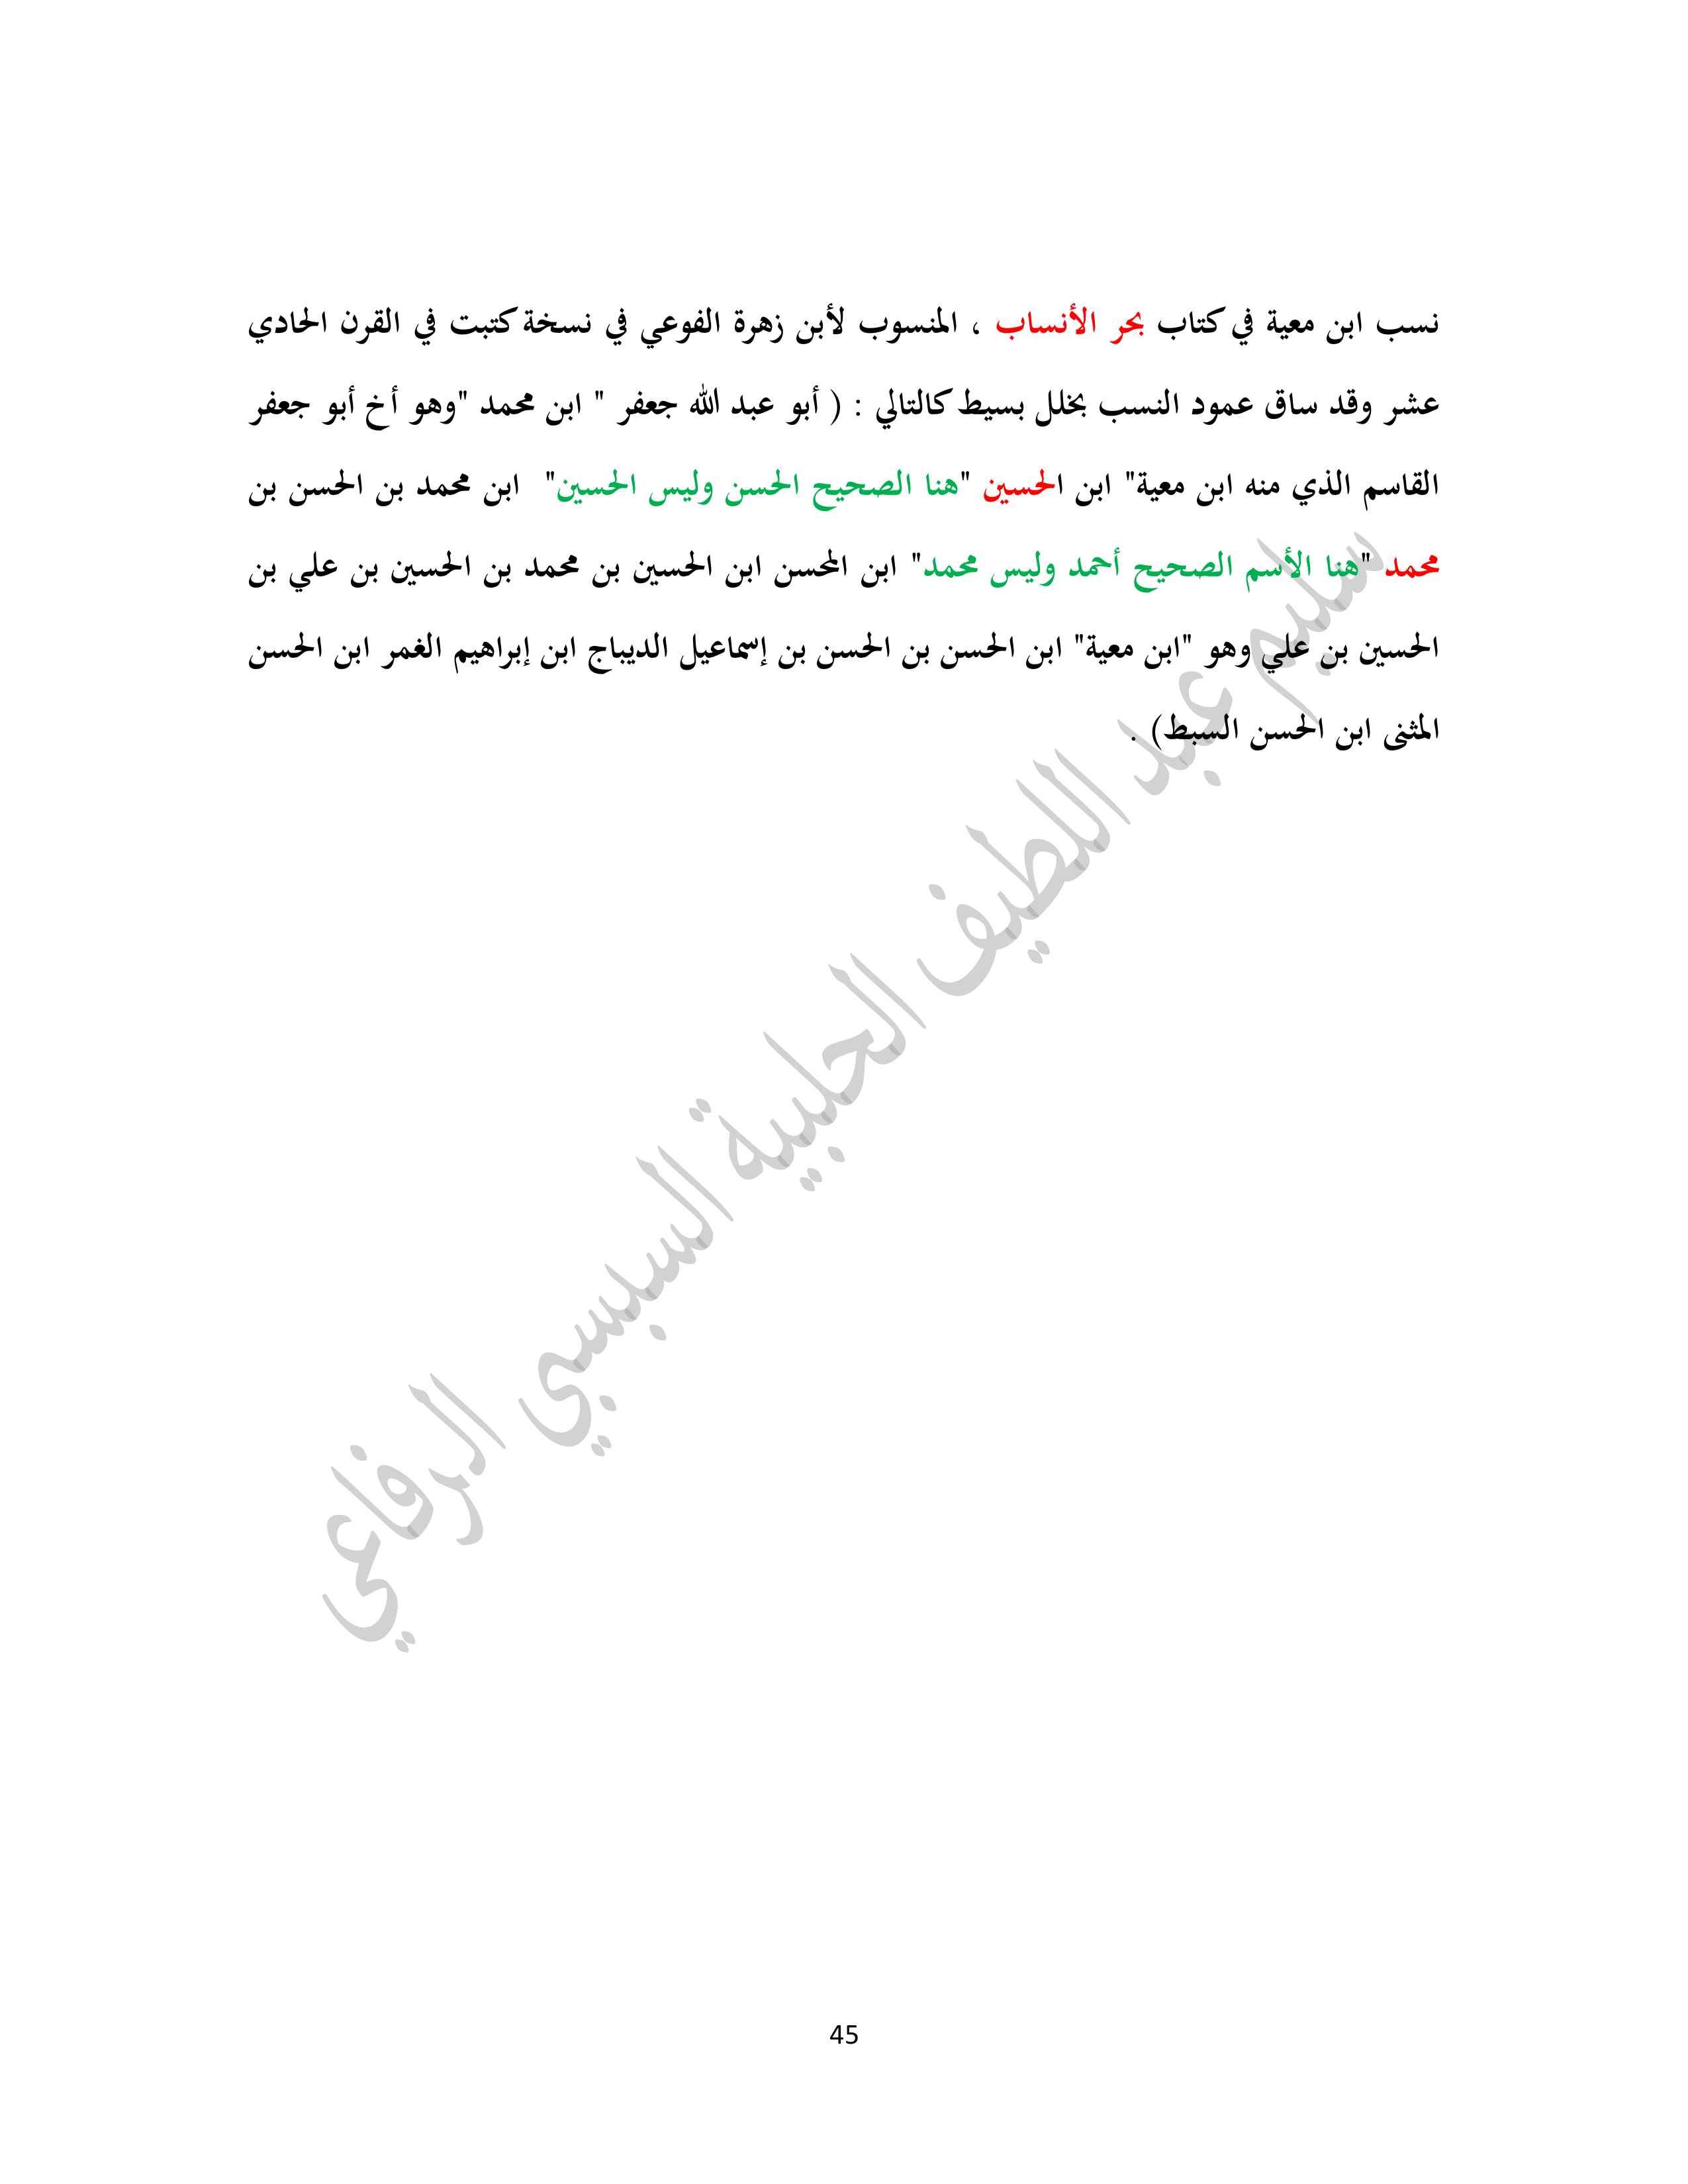 نسب ابن معية في كتاب بحر الأنساب ، المنسوب لأبن زهرة الفوعي في نسخة كتبت في القرن الحادي
عشر وقد ساق عمود النسب بخلل بسيط كالتالي : ( أبو عبد الله جعفر " ابن محمد "وهو أخ أبو جعفر
القاسم الذي منه ابن معية" ابن الحسين "هنا الصحيح الحسن وليس الحسين" ابن محمد بن الحسن بن
محمد "هنا الأسم الصحيح أحمد وليس محمد" ابن المحسن ابن الحسين بن محمد بن الحسين بن علي بن
الحسين بن علي وهو "ابن معية" ابن الحسن بن الحسن بن إسماعيل الديباج ابن إبراهيم الغمر ابن الحسن
المثنى ابن الحسن السبط) .
سليم عبد اللطيف الحلبية السبسبي الرفاعي
45